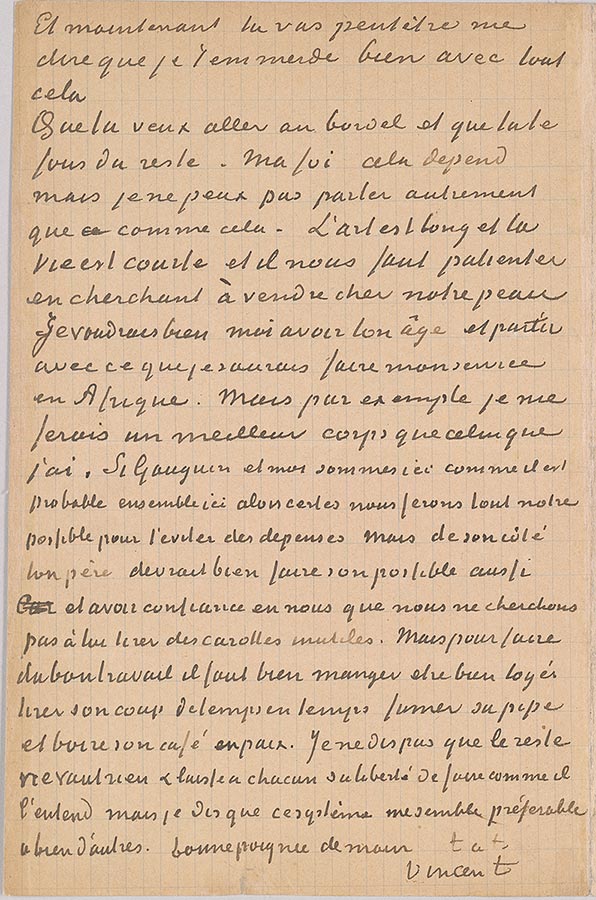 Et maintenant tu vas peutêtre me
dire que je t'emmerde bien avec tout
cela
Que tu veux aller au bordel et que tu te
fous du reste. Ma foi cela depend
mais je ne peux pas parler autrement
que comme cela – L'art est long et la
vie est courte et il nous faut patienter
en cherchant à vendre cher notre peau
Je voudrais bien moi avoir ton âge et partir
avec ce que je saurais faire mon service
en Afrique. Mais par exemple je me
ferais un meilleur corps que celui que
j'ai. Si Gauguin et moi sommes ici comme il est
probable ensemble ici alors certes nous ferons tout notre
possible pour t'eviter des depenses mais de son côté
ton père devrait bien faire son possible aussi
et avoir confiance en nous que nous ne cherchons
pas à lui tirer des carottes inutiles. Mais pour faire
du bon travail il faut bien manger etre bien logés
tirer son coup de temps en temps fumer sa pipe
et boire son café en paix. Je ne dis pas que le reste
ne vaut rien & laisse a chacun sa liberté de faire comme il
l'entend mais je dis que ce système me semble préferable
a bien d'autres. bonne poignée de main t. à t.
Vincent